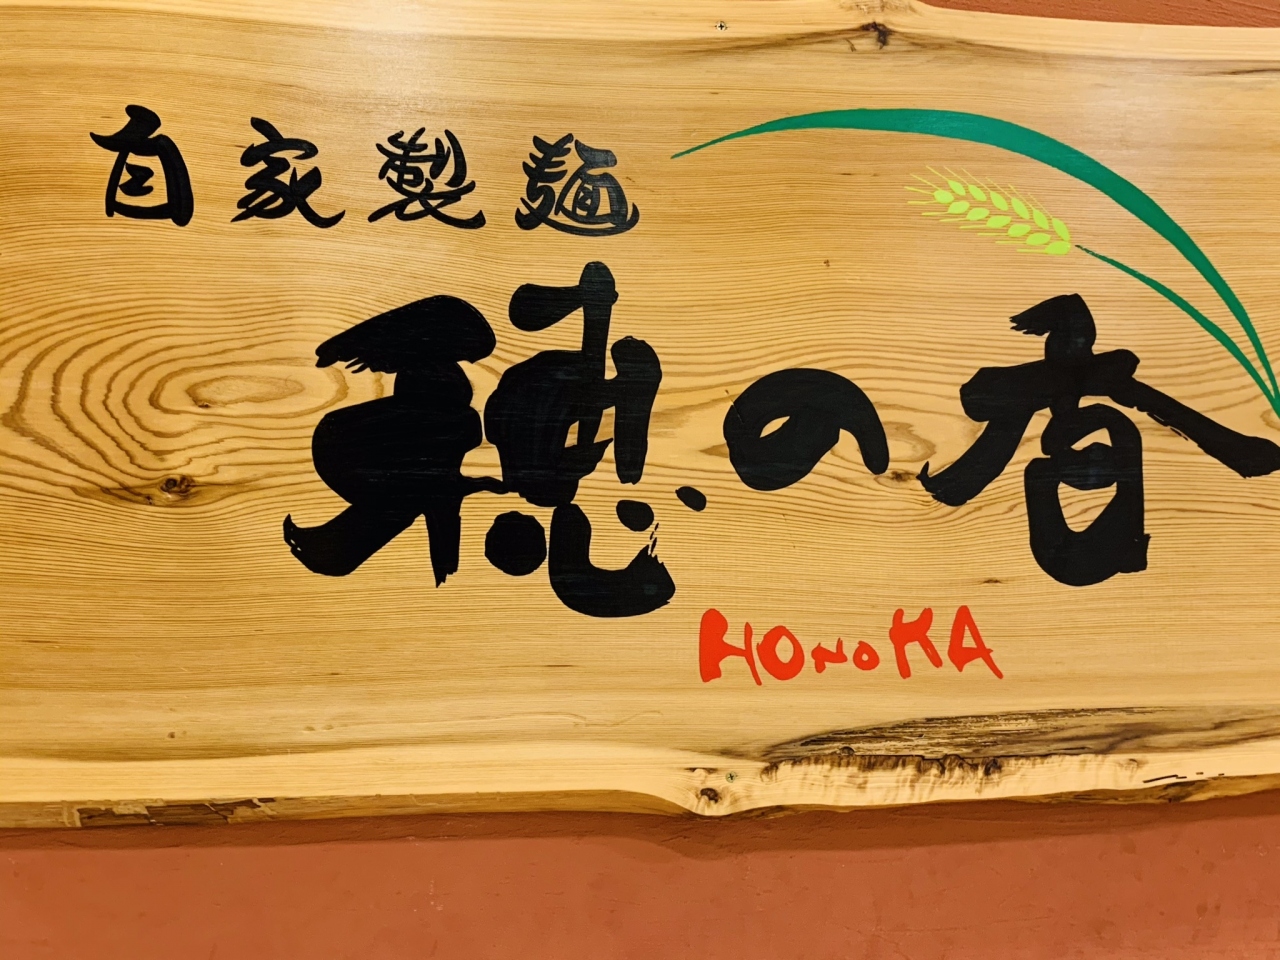 自家製麺
穂の香
HONOKA